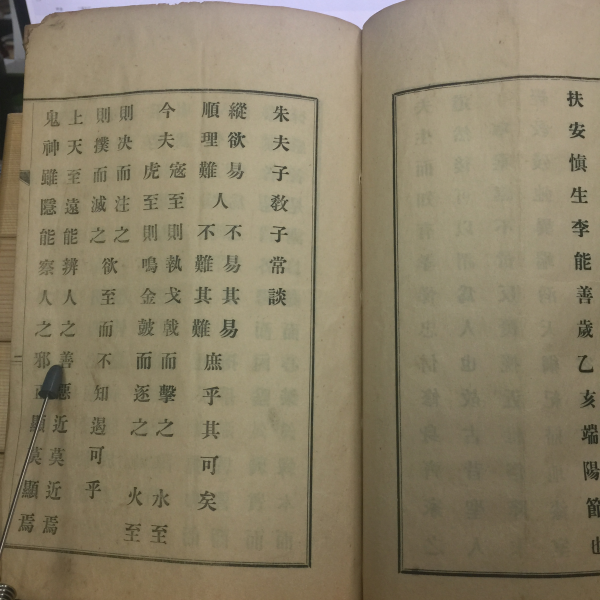 扶安愼生李能善歲乙亥端陽節
朱夫子敎子常談
縱欲易
順理難
人
不易其易
不難其難
庶乎其可矣
今夫
寇至則執戈戟而擊之
虎至則鳴金皷而逐之
水至
火至
則决而注之
則撲而滅之
欲至而不知遏可乎
上天至遠能辨人之善惡近莫近焉
鬼神雖隱能察人之邪顯莫顯焉